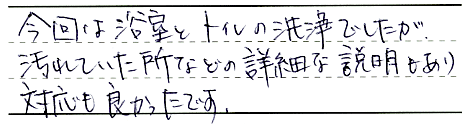 今回は浴室とトイレの洗浄でしたが、
汚れていた所などの詳細な説明もあり
対応も良かったです。